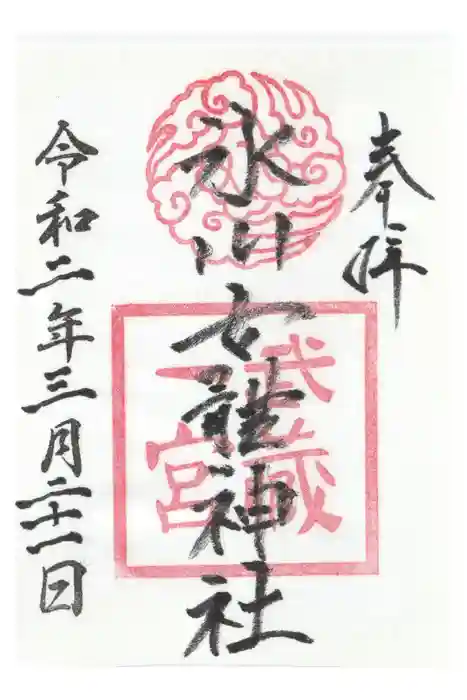 奉拝
氷川女體神社
武蔵
一宮
令和二年三月二十一日